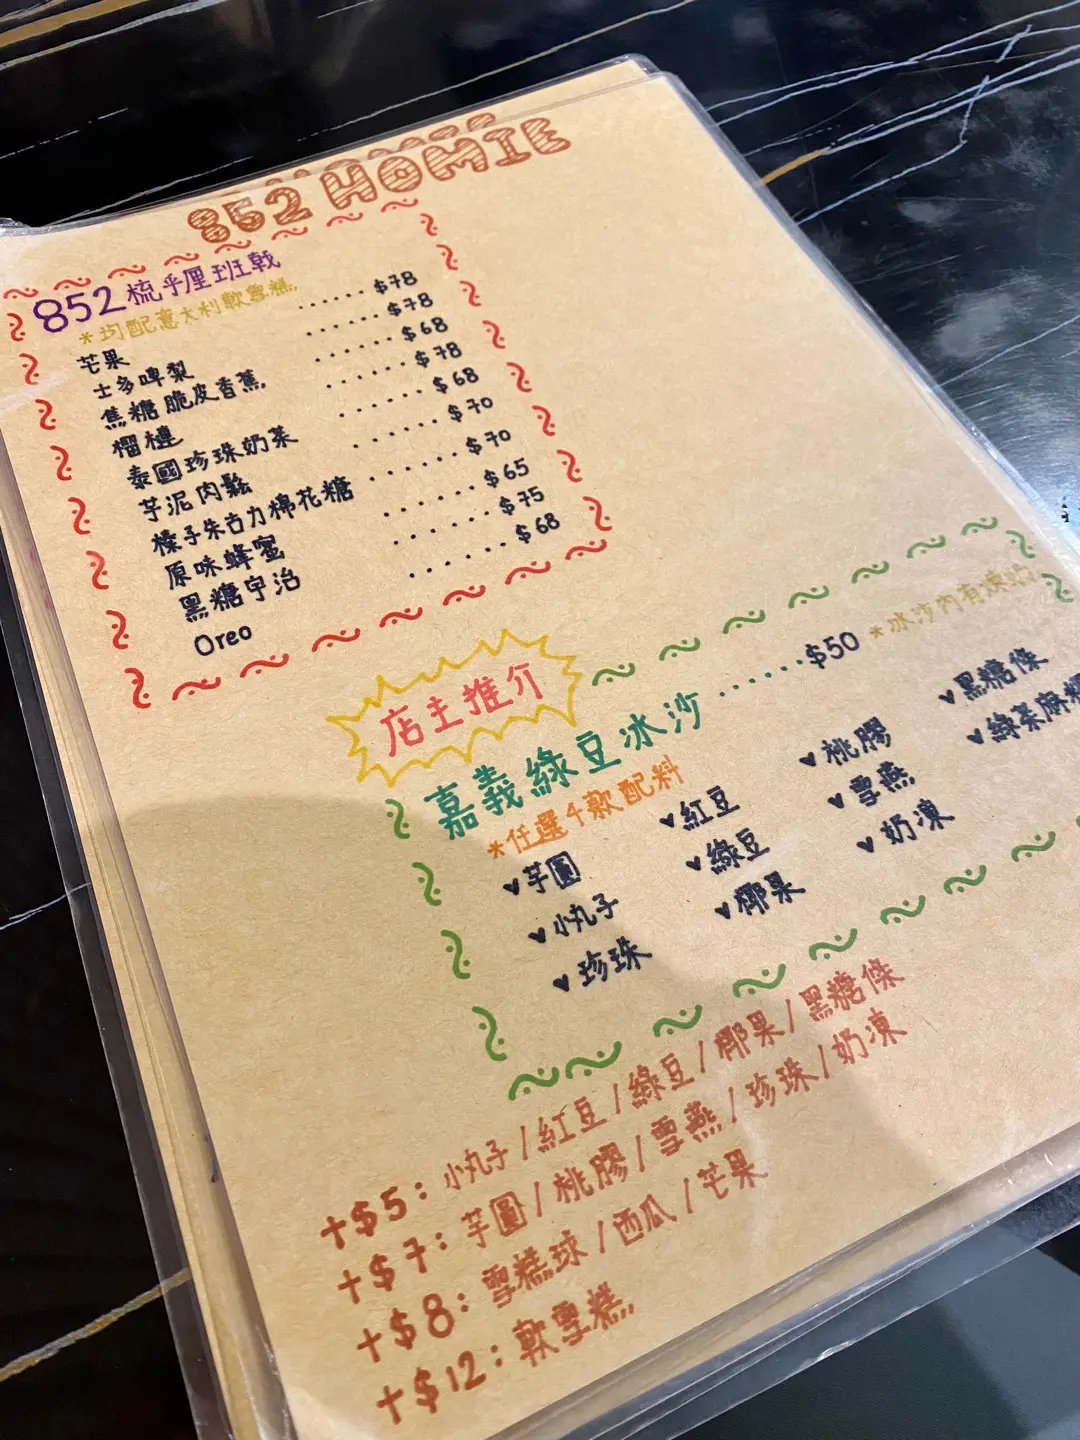 852 HOMIE
852梳乎厘班戟
*均配意大利軟雪糕
芒果 ...... $78
士多啤梨 ...... $78
焦糖脆皮香蕉 ...... $68
榴槤 ...... $78
泰國珍珠奶茶 ...... $68
芋泥肉鬆 ...... $70
榛子朱古力棉花糖 ...... $70
原味蜂蜜 ...... $65
黑糖宇治 ...... $75
Oreo ...... $68
店主推介
嘉義綠豆冰沙 ...... $50 *冰沙內有
*任選4款配料
♥芋圓 ♥紅豆 ♥桃膠 ♥黑糖條
♥小丸子 ♥綠豆 ♥雪燕 ♥綠茶麻糬
♥珍珠 ♥椰果 ♥奶凍
+$5: 小丸子/紅豆/綠豆/椰果/黑糖條
+$7: 芋圓/桃膠/雪燕/珍珠/奶凍
+$8: 雪糕球/西瓜/芒果
+$12: 軟雪糕